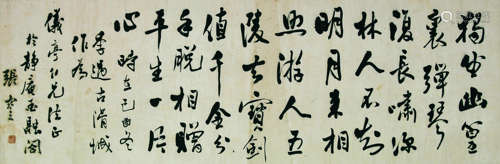 獨坐幽篁
裏彈琴
復長嘯深
林人不知
明月来相
照游人五
陵去寶劍
值千金分
手脫相贈
平生一片
心時冬
季過古滑
作為
儀亭仁兄法正
於靜
張